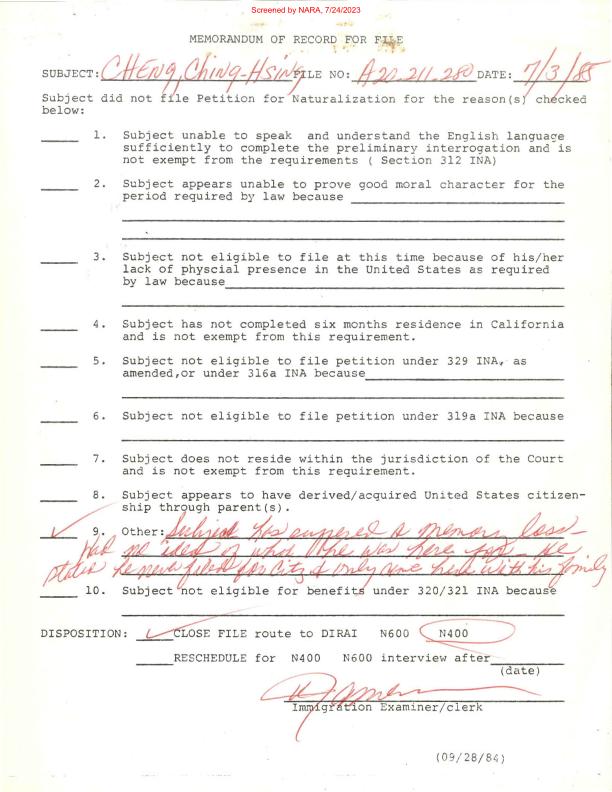 Screened by NARA, 7/24/2023
MEMORANDUM OF RECORD FOR FILE
SUBJECT: CHENG, Ching-Hsing FILE NO: A20-211-280 DATE: 7/3/85
Subject did not file Petition for Naturalization for the reason(s) checked
below:
1. Subject unable to speak and understand the English language
sufficiently to complete the preliminary interrogation and is
not exempt from the requirements ( Section 312 INA)
2. Subject appears unable to prove good moral character for the
period required by law because
3. Subject not eligible to file at this time because of his/her
lack of physcial presence in the United States as required
by law because
4. Subject has not completed six months residence in California
and is not exempt from this requirement.
5. Subject not eligible to file petition under 329 INA, as
amended,or under 316a INA because
6. Subject not eligible to file petition under 319a INA because
7. Subject does not reside within the jurisdiction of the Court
and is not exempt from this requirement.
8. Subject appears to have derived/acquired United States citizen-
ship through parent(s).
✓ 9. Other: has suffered a memory loss-
Had no idea of what he was here for - He
states he never filed for City & only came here with his family
10. Subject not eligible for benefits under 320/321 INA because
DISPOSITION: ✓ CLOSE FILE route to DIRAI N600 N400
RESCHEDULE for N400 N600 interview after
(date)
Immigration Examiner/clerk
(09/28/84)